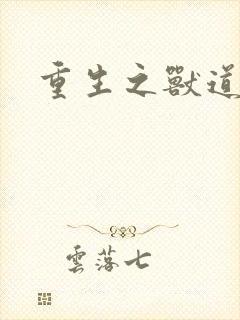 重生之獸道
雲落七